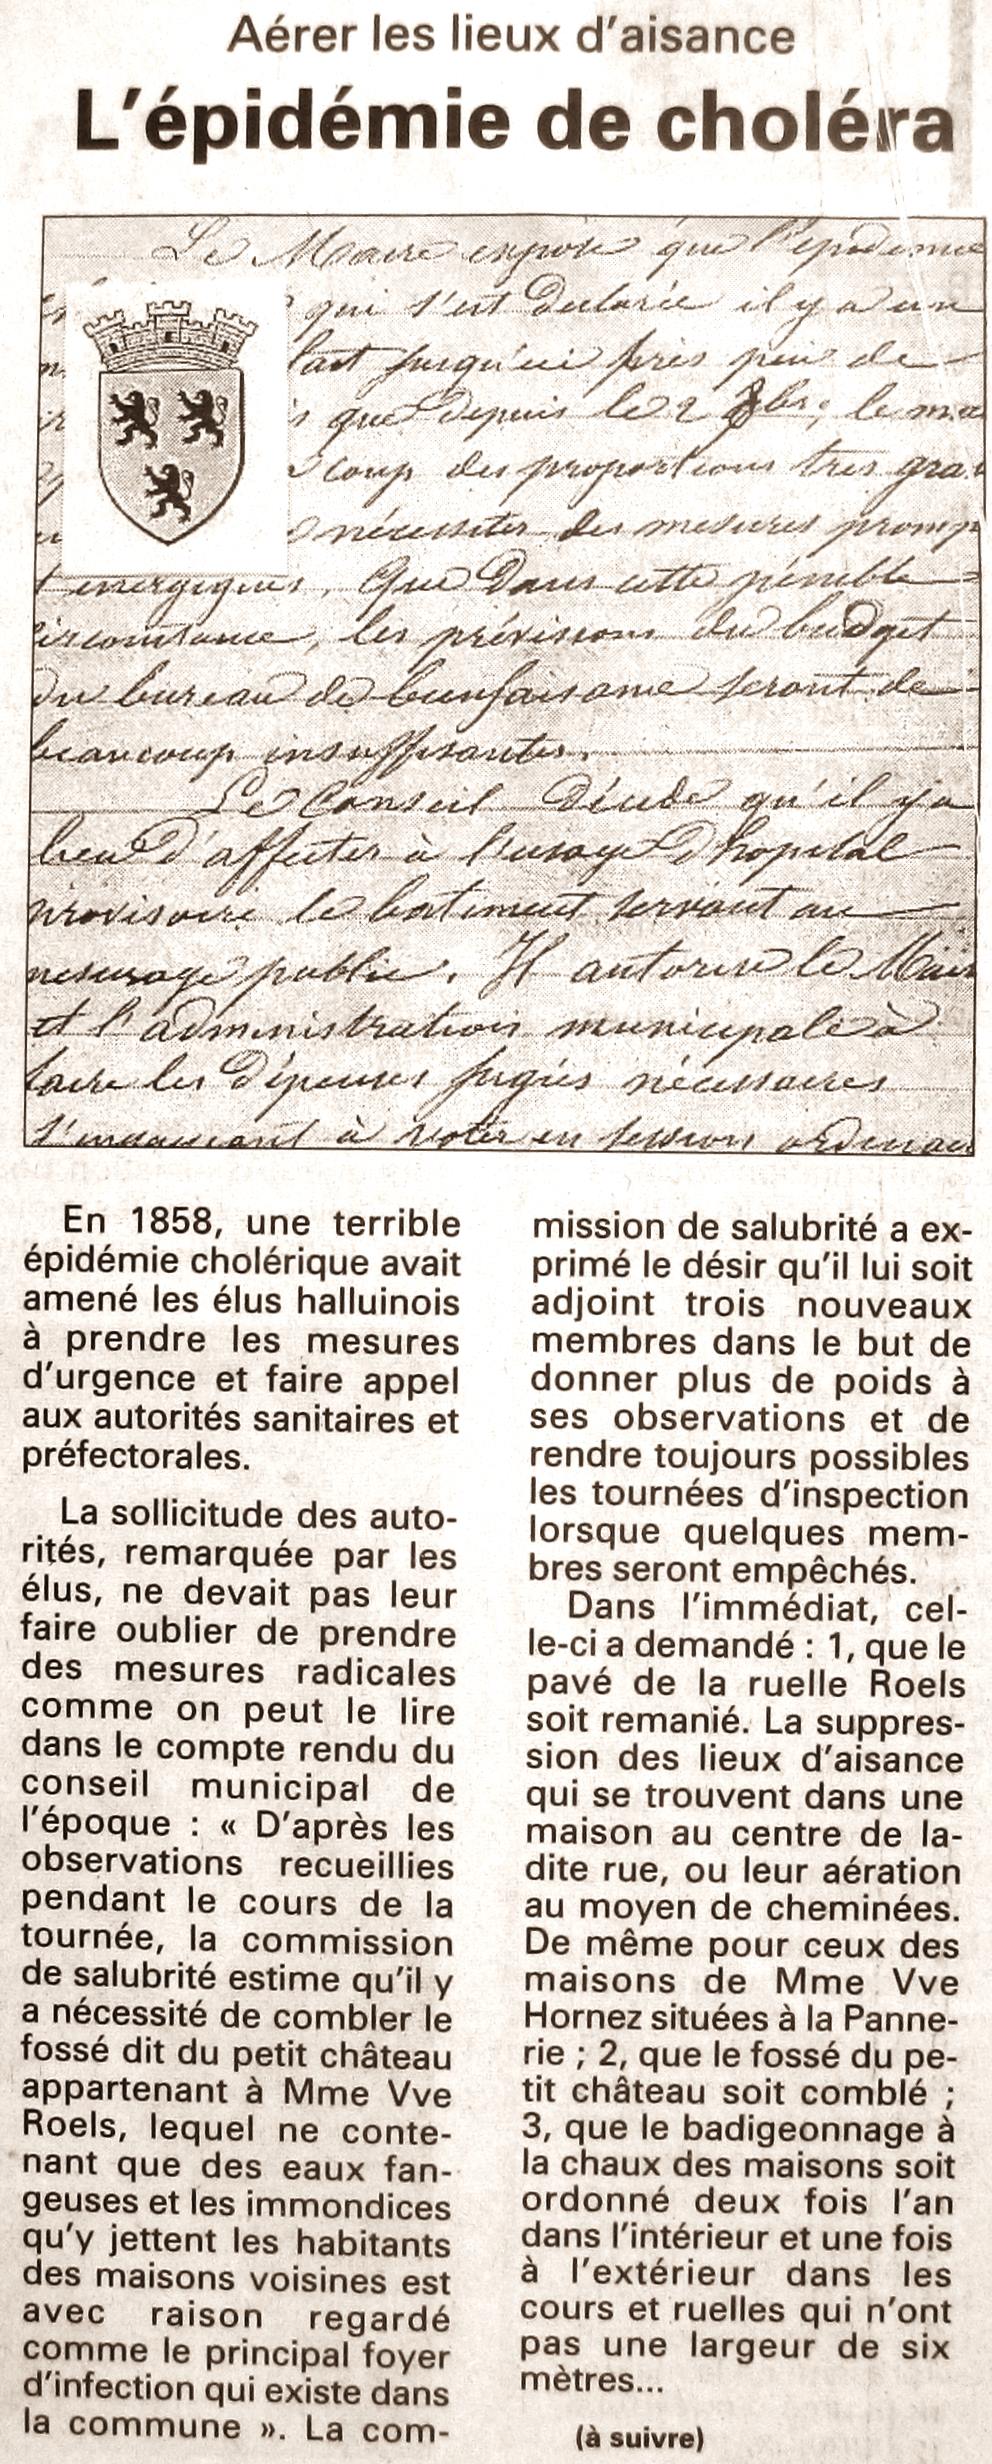 Aérer les lieux d'aisance
L'épidémie de choléra
Le Maire expose que l'epidemie
qui s'est déclarée il y a un
jusqu'ici près peu de
que depuis le 2 8bre, le ma
coup des proportions tres gra
nécessiter des mesures promp
t energiques, Que dans cette pénible
circonstance, les prévisions du budget
du bureau de bienfaisance seront de
beaucoup insuffisantes.
Le Conseil décide qu'il y a
lieu d'affecter à l'usage d'hopital
provisoire le batiment servant au
mesurage public. Il autorise le Maire
et l'administration municipale à
faire les dépenses jugées nécessaires
s'engageant à voter en session ordinai
En 1858, une terrible
épidémie cholérique avait
amené les élus halluinois
à prendre les mesures
d'urgence et faire appel
aux autorités sanitaires et
préfectorales.
La sollicitude des auto-
rités, remarquée par les
élus, ne devait pas leur
faire oublier de prendre
des mesures radicales
comme on peut le lire
dans le compte rendu du
conseil municipal de
l'époque : « D'après les
observations recueillies
pendant le cours de la
tournée, la commission
de salubrité estime qu'il y
a nécessité de combler le
fossé dit du petit château
appartenant à Mme Vve
Roels, lequel ne conte-
nant que des eaux fan-
geuses et les immondices
qu'y jettent les habitants
des maisons voisines est
avec raison regardé
comme le principal foyer
d'infection qui existe dans
la commune ». La com-
mission de salubrité a ex-
primé le désir qu'il lui soit
adjoint trois nouveaux
membres dans le but de
donner plus de poids à
ses observations et de
rendre toujours possibles
les tournées d'inspection
lorsque quelques mem-
bres seront empêchés.
Dans l'immédiat, cel-
le-ci a demandé : 1, que le
pavé de la ruelle Roels
soit remanié. La suppres-
sion des lieux d'aisance
qui se trouvent dans une
maison au centre de la-
dite rue, ou leur aération
au moyen de cheminées.
De même pour ceux des
maisons de Mme Vve
Hornez situées à la Panne-
rie ; 2, que le fossé du pe-
tit château soit comblé ;
3, que le badigeonnage à
la chaux des maisons soit
ordonné deux fois l'an
dans l'intérieur et une fois
à l'extérieur dans les
cours et ruelles qui n'ont
pas une largeur de six
mètres...
(à suivre)